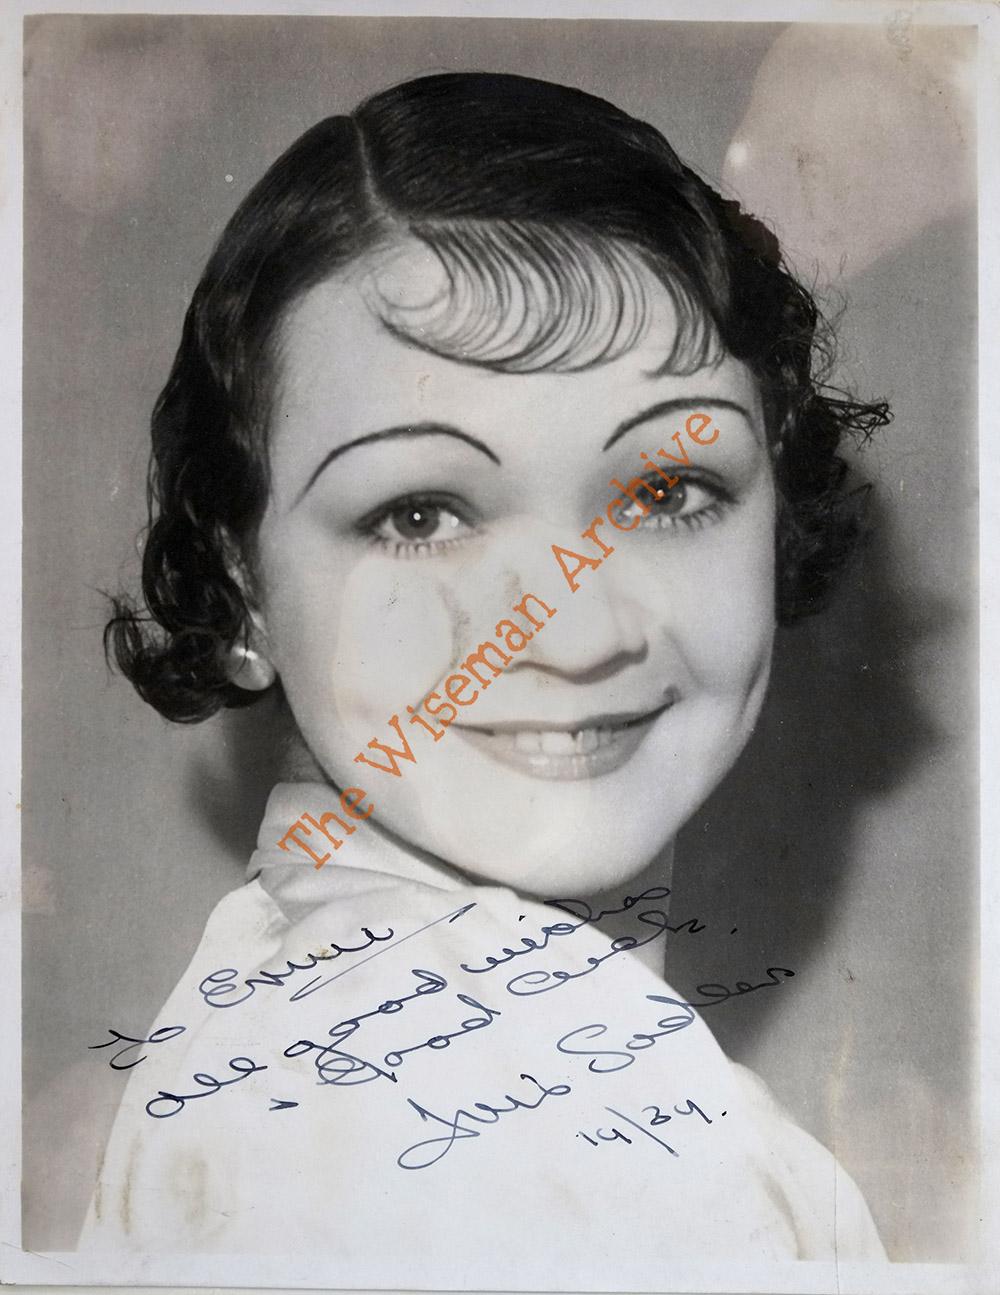 The Wiseman Archive
To Ernie
all good wishes
& Good Luck.
Iris Sadler
19/39.